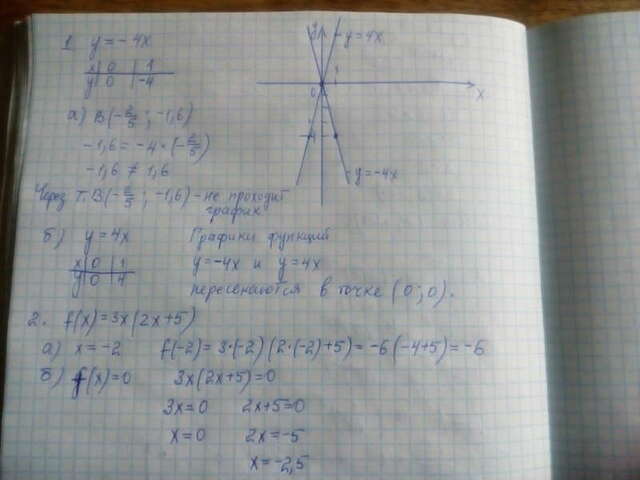 1. y = -4x
x | 0 | 1
y | 0 | -4
а) B(-2/5 ; -1,6)
-1,6 = -4·(-2/5)
-1,6 ≠ 1,6
Через т. B(-2/5 ; -1,6) - не проходит
график
y
y = 4x
1
0
x
-4
y = -4x
б) y = 4x
x | 0 | 1
y | 0 | 4
Графики функций
y = -4x и y = 4x
пересекаются в точке (0 ; 0).
2. f(x) = 3x(2x+5)
а) x = -2 f(-2) = 3·(-2)(2·(-2)+5) = -6(-4+5) = -6
б) f(x) = 0 3x(2x+5) = 0
3x = 0 2x+5 = 0
x = 0 2x = -5
x = -2,5